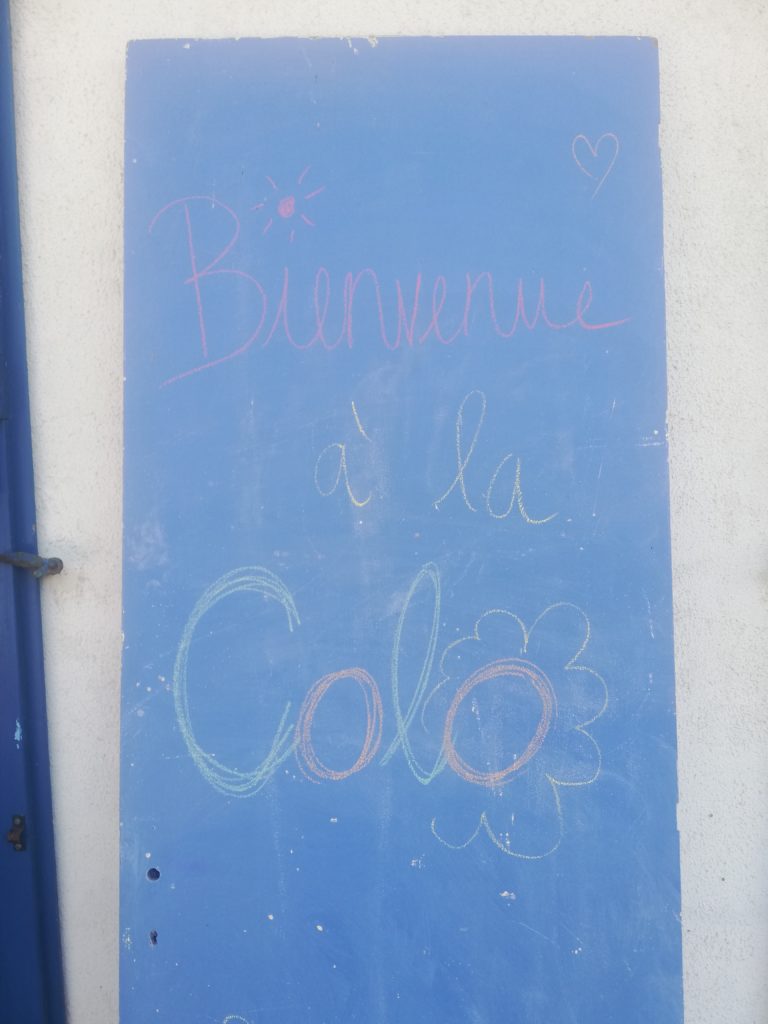 Bienvenue
à la
Colo